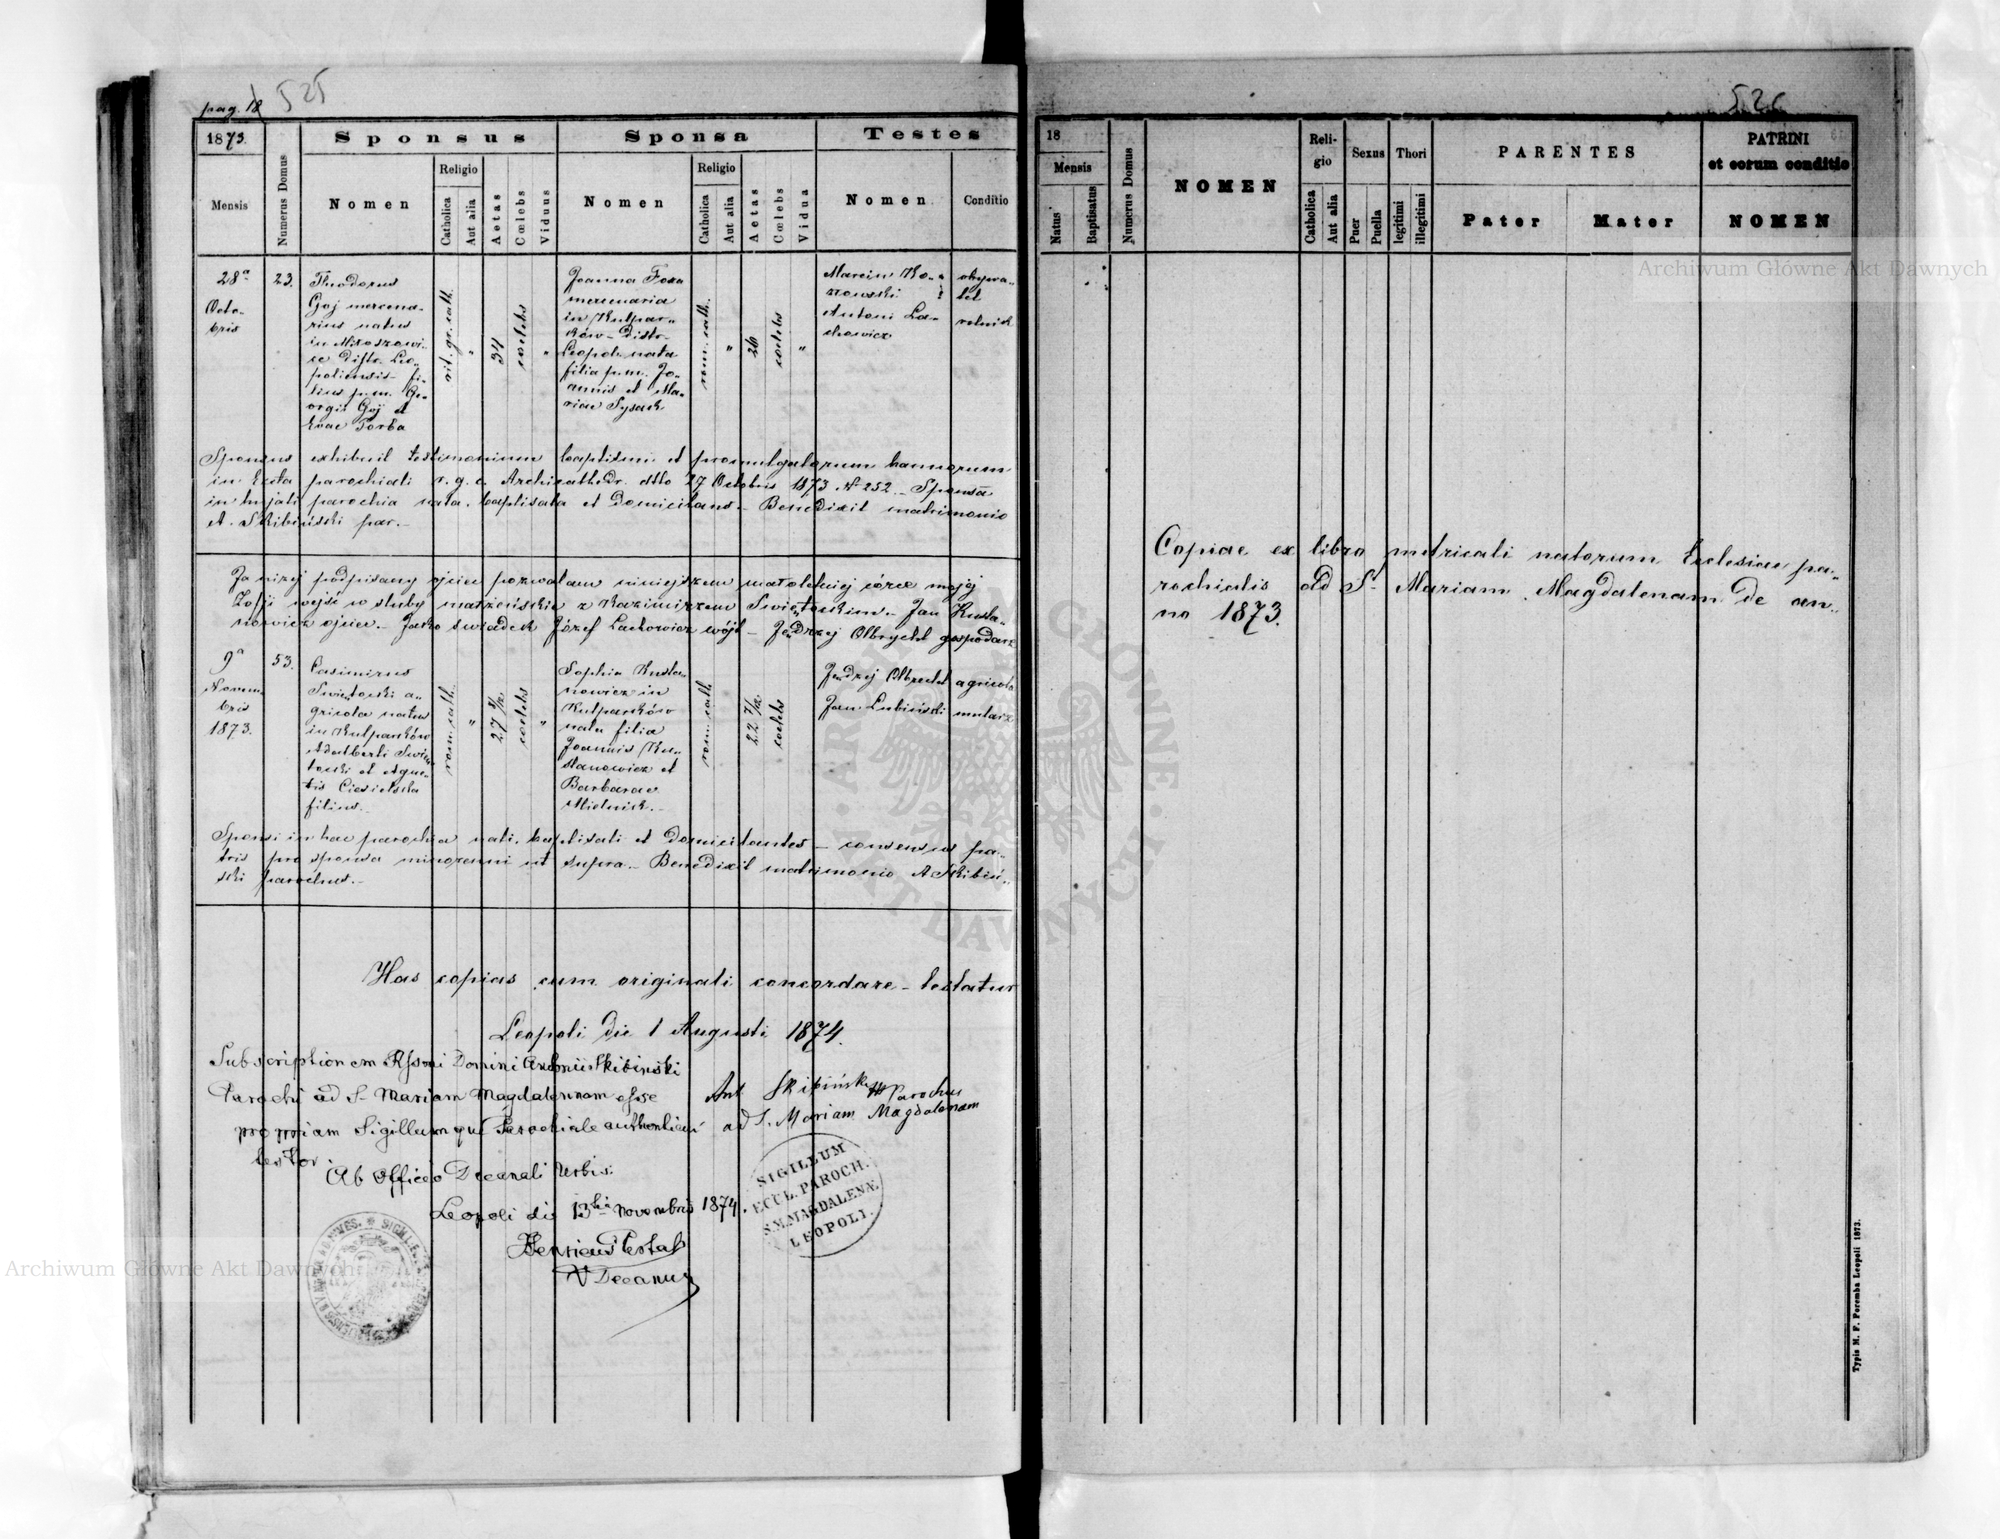 pag. 18
525
1873.
Numerus Domus
Sponsus
Sponsa
Testes
Mensis
Nomen
Religio
Catholica
Aut alia
Aetas
Cœlebs
Viduus
Nomen
Religio
Catholica
Aut alia
Aetas
Cœlebs
Vidua
Nomen
Conditio
28ª
Octo-
bris
23.
Theodorus
Goj mercena-
rius natus
in Miłoszowi-
ce Distr. Leo-
poliensis fi-
lius p.m. Ge-
orgii Goj et
Evae Torba
rit. gr. cath.
"
34
coelebs
"
Joanna Foxa
mercenaria
in Kulpar-
ków Distr.
Leopol. nata
filia p.m. Jo-
annis et Ma-
riae Sysak
rom. cath.
"
26
coelebs
"
Marcin Ko-
szowski
Antoni La-
chowicz
obywa-
tel
rolnik
Sponsus exhibuit testimonium baptismi et promulgatorum bannorum
in Eccla parochiali r. g. c. Archicathedr. dtto 27 Octobris 1873 № 252. Sponsa
in hujati parochia nata, baptisata et domicilans. Benedixit matrimonio
A. Skibiński par.
Ja niżej podpisany ojciec pozwalam niniejszem małoletniej córce mojej
Zofji wejść w śluby małżeńskie z Kazimirzem Świętoskim. Jan Kusta-
nowicz ojciec. Jako świadek Józef Lachowicz wójt - Jędrzej Olbrycht gospodarz
9ª
Novem
bris
1873.
53.
Casimirus
Swiętoski a-
gricola natus
in Kulparków
Adalberti Swię-
toski et Agne-
tis Ciesielska
filius.
rom. cath.
"
27
coelebs
"
Sophia Kusta-
nowicz in
Kulparków
nata filia
Joannis Ku-
stanowicz et
Barbarae
Mielnik.
rom. cath.
22
coelebs
Jędrzej Olbrycht agricola
Jan Lubiński mularz
Sponsi in hac parochia nati, baptisati et domicilantes - consensus pa-
tris pro sponsa minorenni ut supra. Benedixit matrimonio A Skibiń-
ski parochus.
Has copias cum originali concordare testatur
Leopoli die 1 Augusti 1874.
Subscriptionem Rssmi Domini Antonii Skibinski
Parochi ad S. Mariam Magdalenam esse
propriam Sigillumque Parochiale authenticum
testor
Ab Officio Decanali Urbis:
Leopoli die 13 Novembris 1874.
Henricus
V Decanus
Ant Skibiński Parochus
ad S. Mariam Magdalenam
SIGILLUM
ECCL. PAROCH.
S.M.MAGDALENÆ
LEOPOLI.
526
18
Mensis
Natus
Baptisatus
Numerus Domus
NOMEN
Reli-
gio
Catholica
Aut alia
Sexus
Puer
Puella
Thori
legitimi
illegitimi
PARENTES
Pater
Mater
PATRINI
et eorum conditio
NOMEN
Copiae ex libro metricali natorum Ecclesiae pa-
rochialis ad St. Mariam Magdalenam de an-
no 1873.
Typis M. F. Poremba Leopoli 1873.
Archiwum Główne Akt Dawnych
Archiwum Główne Akt Dawnych
ARCHIWUM GŁÓWNE · AKT DAWNYCH ·